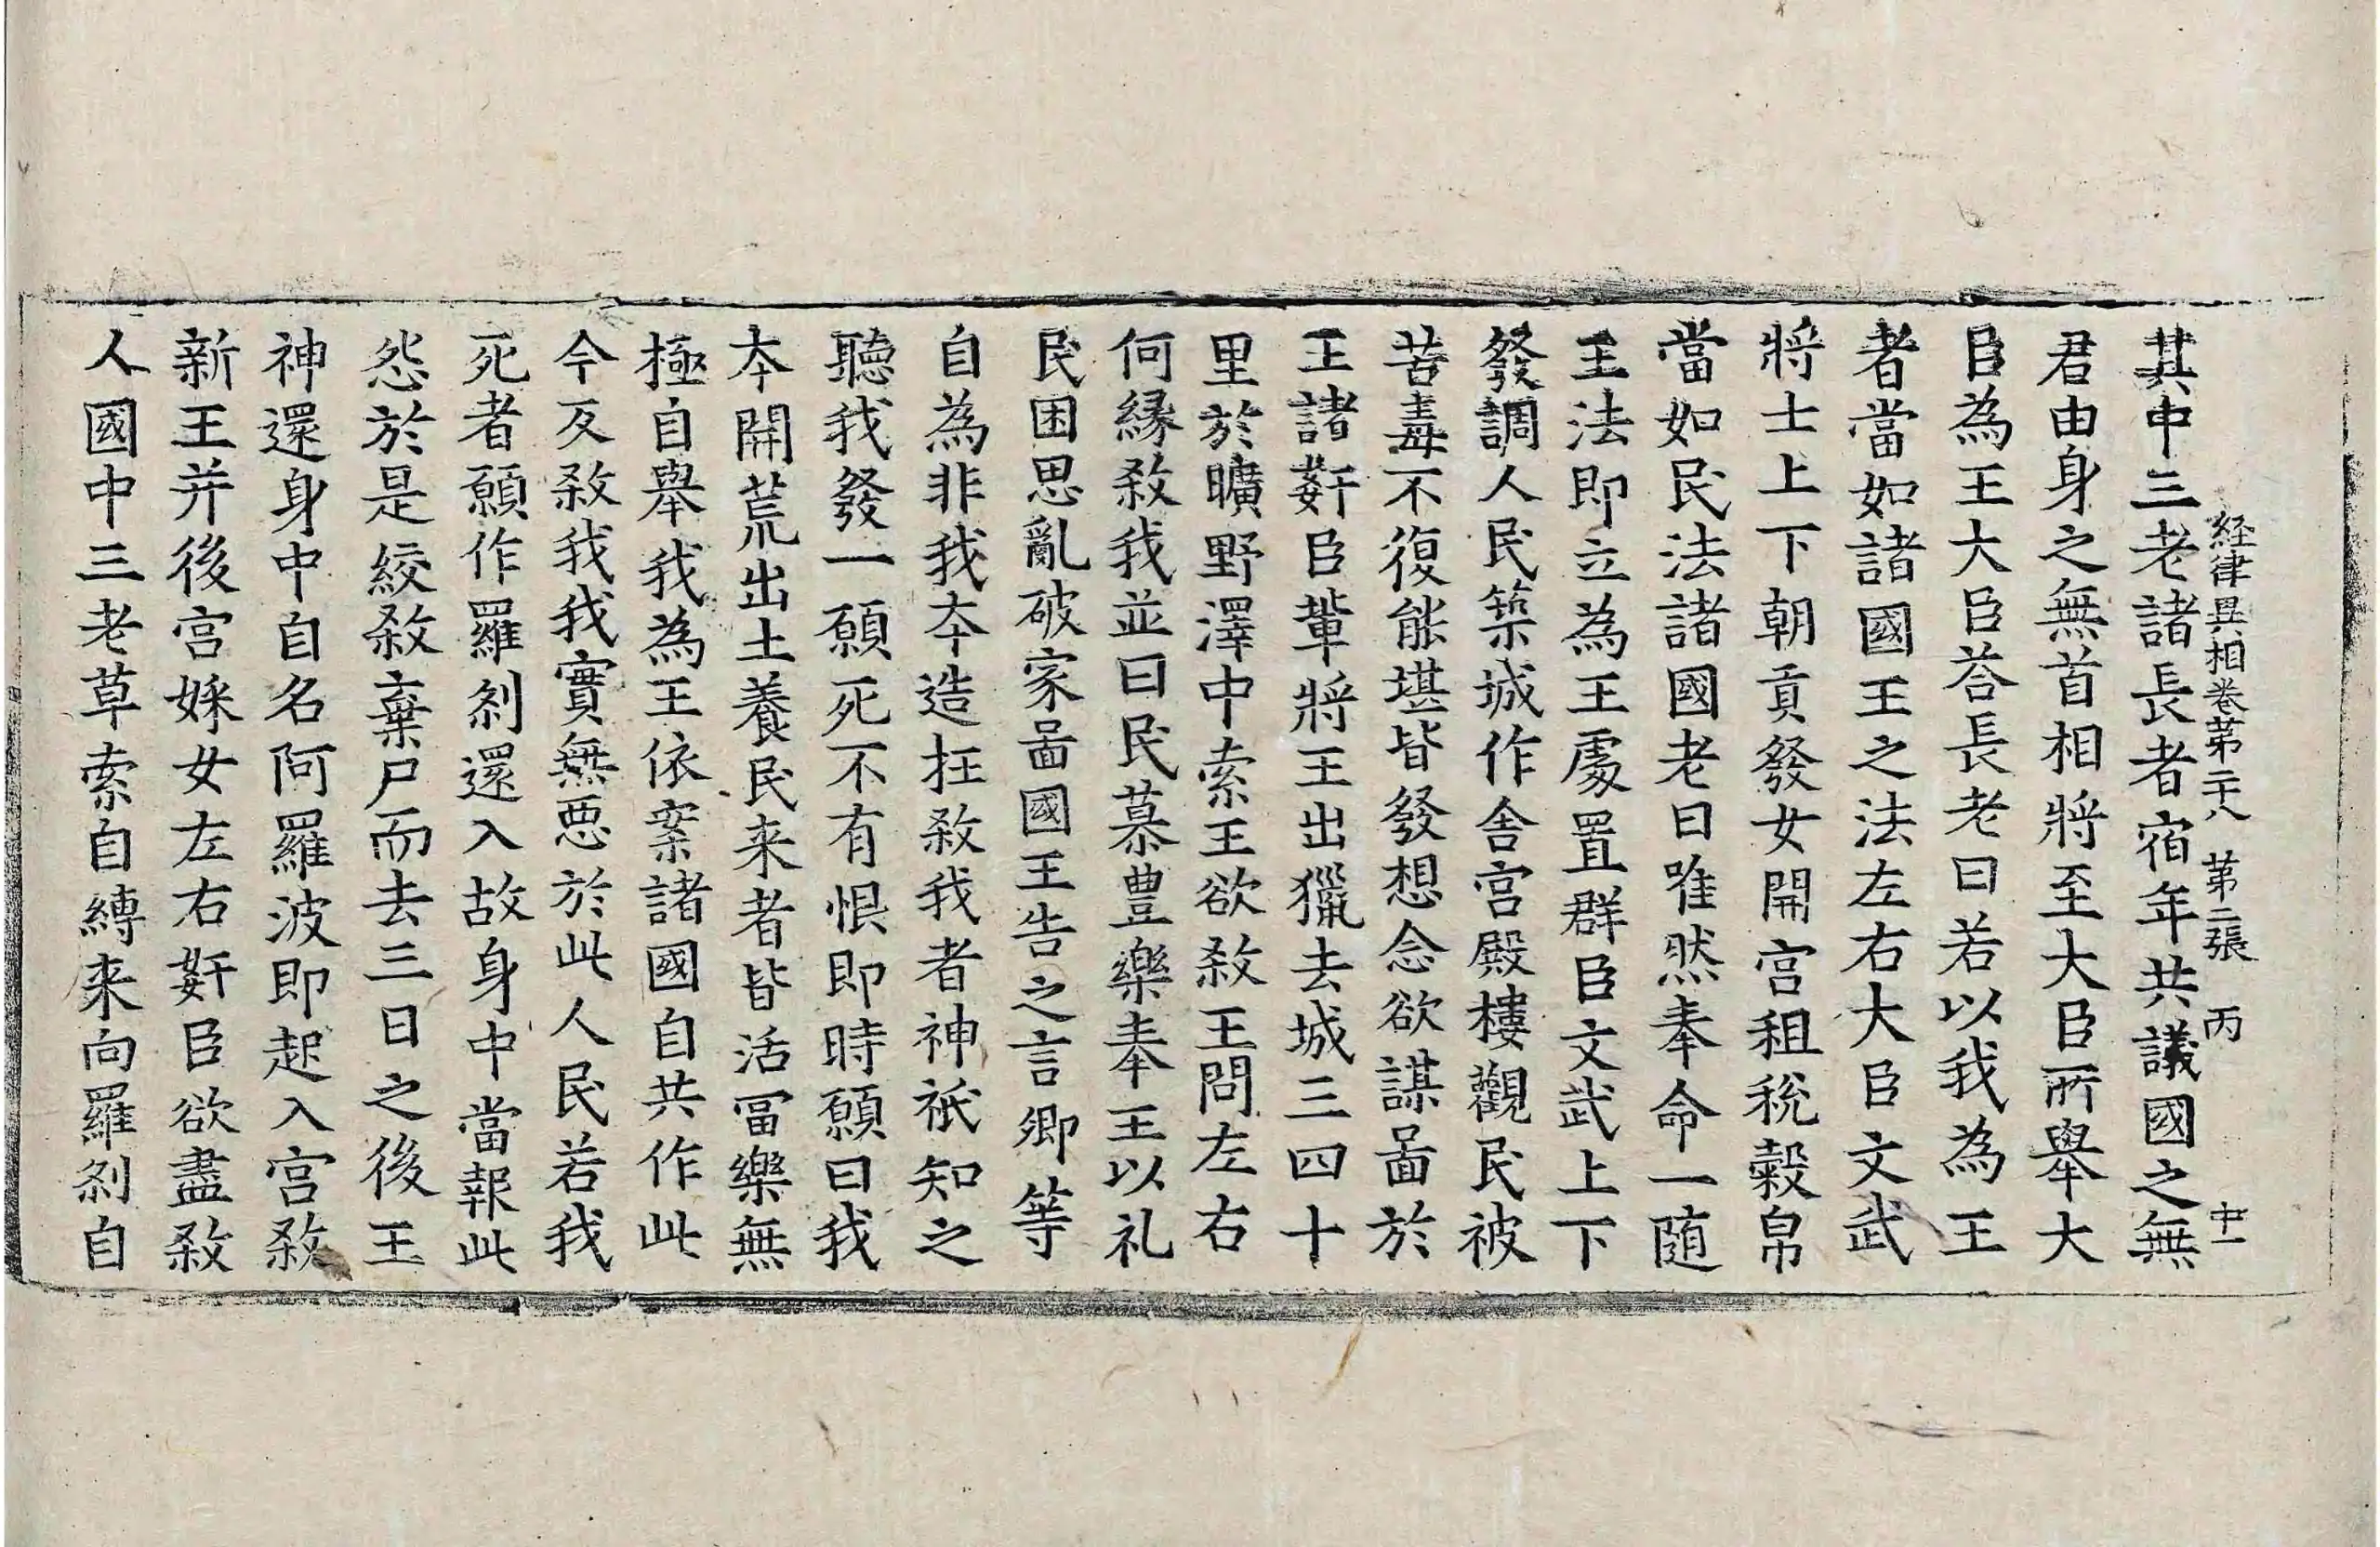 経律異相卷苐二十八 苐二張 丙
其中三老諸長者宿年共議國之無
君由身之無首相將至大臣所舉大
臣為王大臣荅長老曰若以我為王
者當如諸國王之法左右大臣文武
將士上下朝貢發女開宫租稅穀帛
當如民法諸國老曰唯然奉命一随
王法即立為王處置群臣文武上下
發調人民築城作舍宫殿樓觀民被
苦毒不復能堪皆發想念欲謀啚於
王諸姧臣軰將王出獵去城三四十
里於曠野澤中索王欲煞王問左右
何縁煞我並曰民慕豊樂奉王以礼
民困思亂破家啚國王告之言卿等
自為非我夲造抂煞我者神祇知之
聽我發一願死不有恨即時願曰我
夲開荒出土養民来者皆活冨樂無
極自舉我為王依案諸國自共作此
今反煞我我實無悪於此人民若我
死者願作羅剎還入故身中當報此
怨於是絞煞棄尸而去三日之後王
神還身中自名阿羅波即起入宫煞
新王并後宫婇女左右姧臣欲盡煞
人國中三老草索自縛来向羅剎自